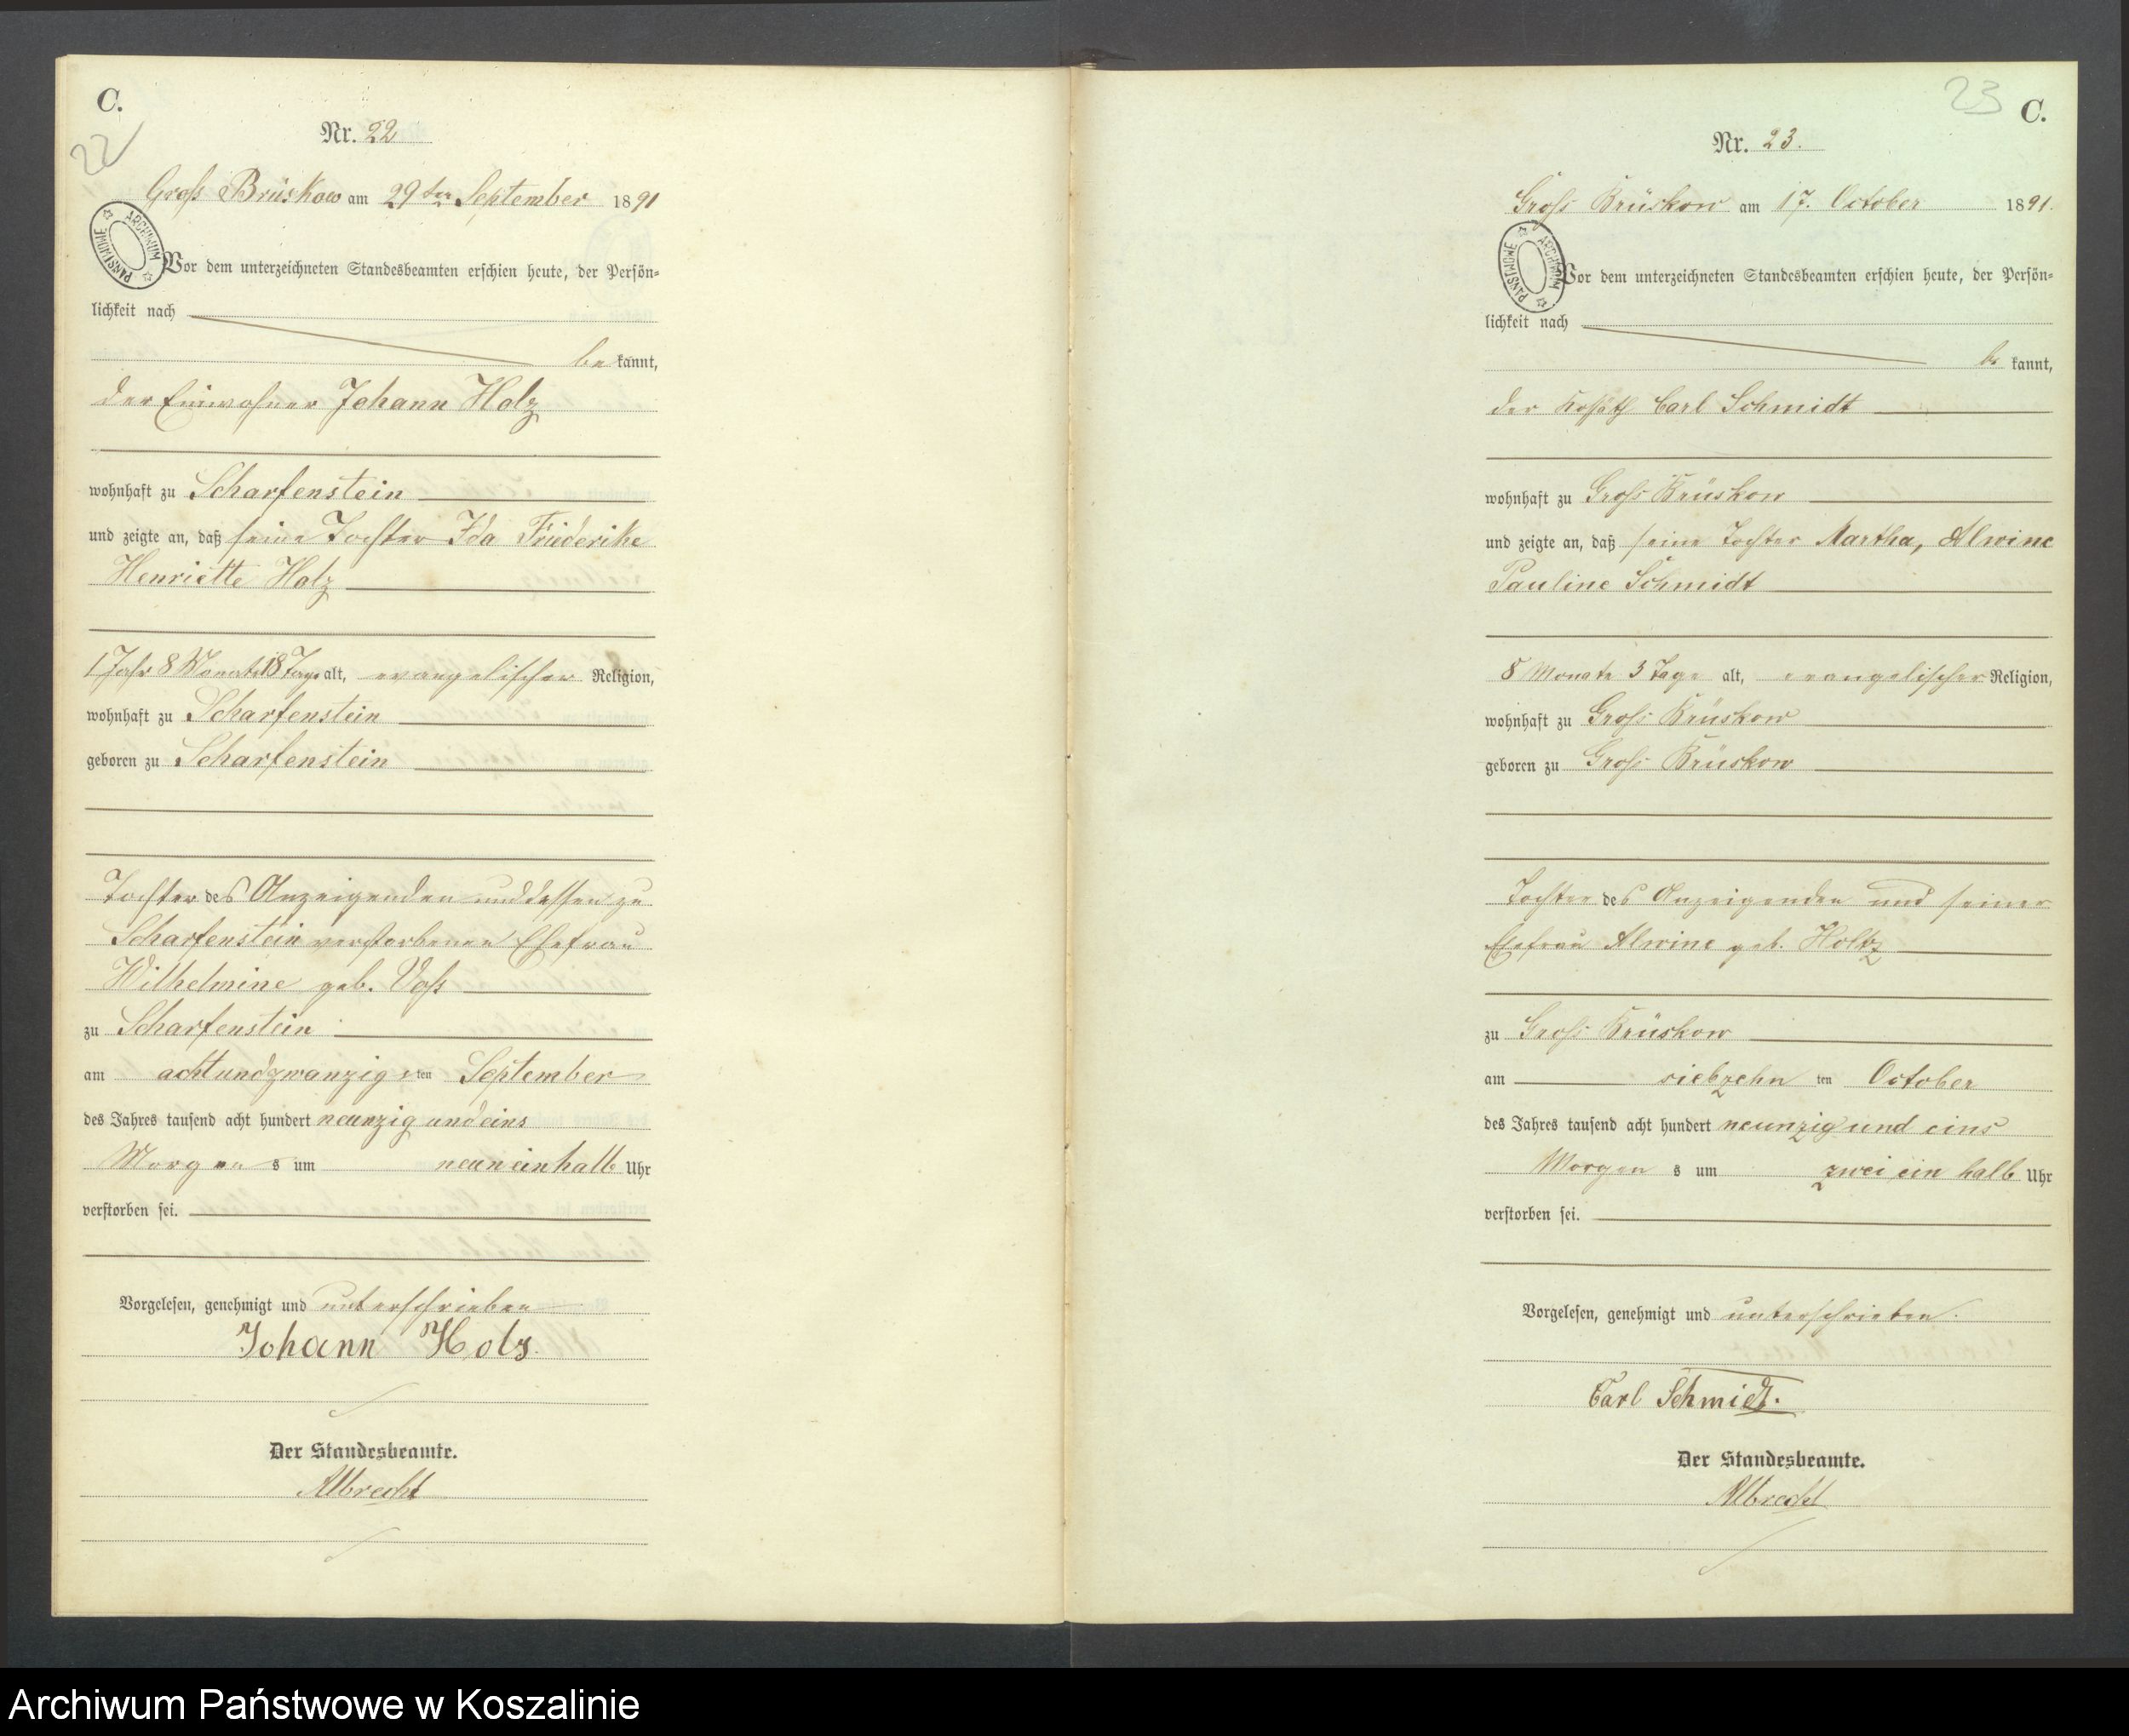 C.
22
Nr. 22
Groß Brüskow am 29ten September 1891
ARCHIWUM PAŃSTWOWE
Vor dem unterzeichneten Standesbeamten erschien heute, der Persön-
lichkeit nach
be kannt,
der Einwohner Johann Holz
wohnhaft zu Scharfenstein
und zeigte an, daß seine Tochter Ida Friederike
Henriette Holz
1 Jahr 8 Monate 18 Tage alt, evangelischer Religion,
wohnhaft zu Scharfenstein
geboren zu Scharfenstein
Tochter des Anzeigenden und dessen zu
Scharfenstein verstorbenen Ehefrau
Wilhelmine geb. Voß
zu Scharfenstein
am achtundzwanzig sten September
des Jahres tausend acht hundert neunzig und eins
Morgen s um neun einhalb Uhr
verstorben sei.
Vorgelesen, genehmigt und unterschrieben
Johann Holz.
Der Standesbeamte.
Albrecht
23
C.
Nr. 23.
Groß Brüskow am 17. October 1891.
ARCHIWUM PAŃSTWOWE
Vor dem unterzeichneten Standesbeamten erschien heute, der Persön-
lichkeit nach
be kannt,
der Kossäth Carl Schmidt
wohnhaft zu Groß Brüskow
und zeigte an, daß seine Tochter Martha, Alwine
Pauline Schmidt
8 Monate 3 Tage alt, evangelischer Religion,
wohnhaft zu Groß Brüskow
geboren zu Groß Brüskow
Tochter des Anzeigenden und seiner
Ehefrau Alwine geb. Holtz
zu Groß Brüskow
am siebzehn ten October
des Jahres tausend acht hundert neunzig und eins
Morgen s um zwei ein halb Uhr
verstorben sei.
Vorgelesen, genehmigt und unterschrieben.
Carl Schmidt.
Der Standesbeamte.
Albrecht
Archiwum Państwowe w Koszalinie